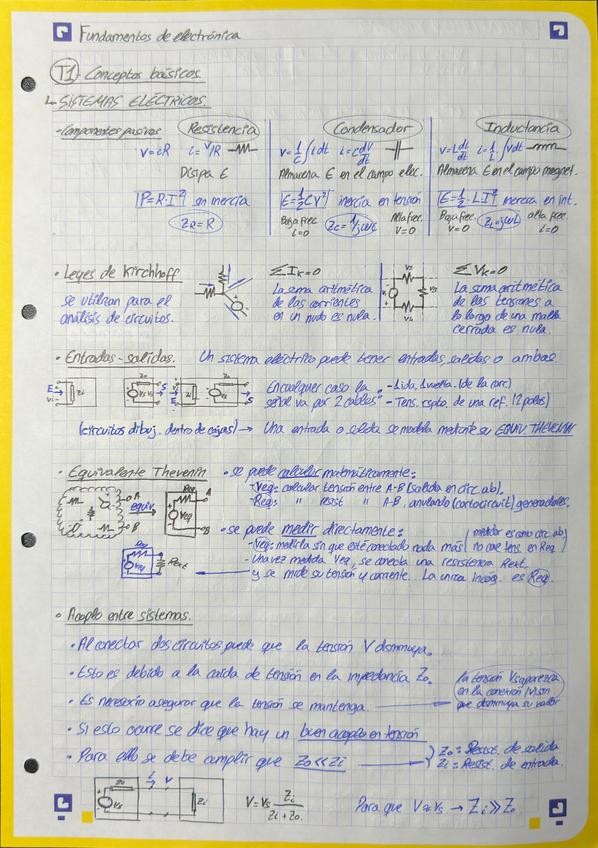 Fundamentos de electrónica
T1 - Conceptos básicos.
↳ SISTEMAS ELÉCTRICOS.
• Componentes pasivos
Resistencia
V=iR i=V/R
Disipa E
P=R·I² sin inercia
Z_R=R
Condensador
V=1/C ∫i dt i=C dV/dt
Almacena E en el campo elec.
E=½CV² inercia en tension
Baja frec. i=0
Zc=1/jωC
Alta frec. V=0
Inductancia
V=L di/dt i=1/L ∫Vdt
Almacena E en el campo magnet.
E=½·LI² inercia en int.
Baja frec. V=0
ZL=jωL
alta frec. i=0
• Leyes de Kirchhoff
se utilizan para el
análisis de circuitos.
ΣI_K=0
La suma aritmética
de las corrientes
en un nudo es nula.
V₁ V₂ V₃ V₄
ΣV_K=0
La suma aritmética
de las tensiones a
lo largo de una malla
cerrada es nula.
• Entradas-salidas. Un sistema eléctrico puede tener entradas, salidas o ambas
E Vi Zi
Vs S
E S
En cualquier caso la
señal va por 2 cables:
- 1 ida, 1 vuelta. (de la corr)
- Tens. rspto. de una ref. (2 polos)
(circuitos dibuj. dentro de cajas) → Una entrada o salida se modela mediante su EQUIV. THEVENIN
• Equivalente Thevenin
• se puede calcular matemáticamente:
- Veq: calcular tensión entre A-B (salida en circ. ab).
- Req: " resist " A-B, anulando (cortocircuit) generadores.
A B equiv. Req Veq A B
• se puede medir directamente:
- Veq: medirla sin que esté conectado nada más
(medidor es como circ. ab
no cae tens. en Req)
- Una vez medida Veq, se conecta una resistencia Rext
y se mide su tensión y corriente. La unica incog. es Req.
Req Veq Rext
• Acoplo entre sistemas.
• Al conectar dos circuitos puede que la tensión V disminuya.
• Esto es debido a la caida de tensión en la impedancia Zo.
• Es necesario asegurar que la tensión se mantenga.
(la tensión Vs aparezca
en la conexión (V) sin
que disminuya su valor)
• Si esto ocurre se dice que hay un buen acoplo en tensión
• Para ello se debe cumplir que Zo<<Zi
Zo = Resist. de salida
Zi = Resist. de entrada.
Zo Vs i V Zi
V=Vs Zi/Zi+Zo.
Para que V≈Vs → Zi≫Zo.